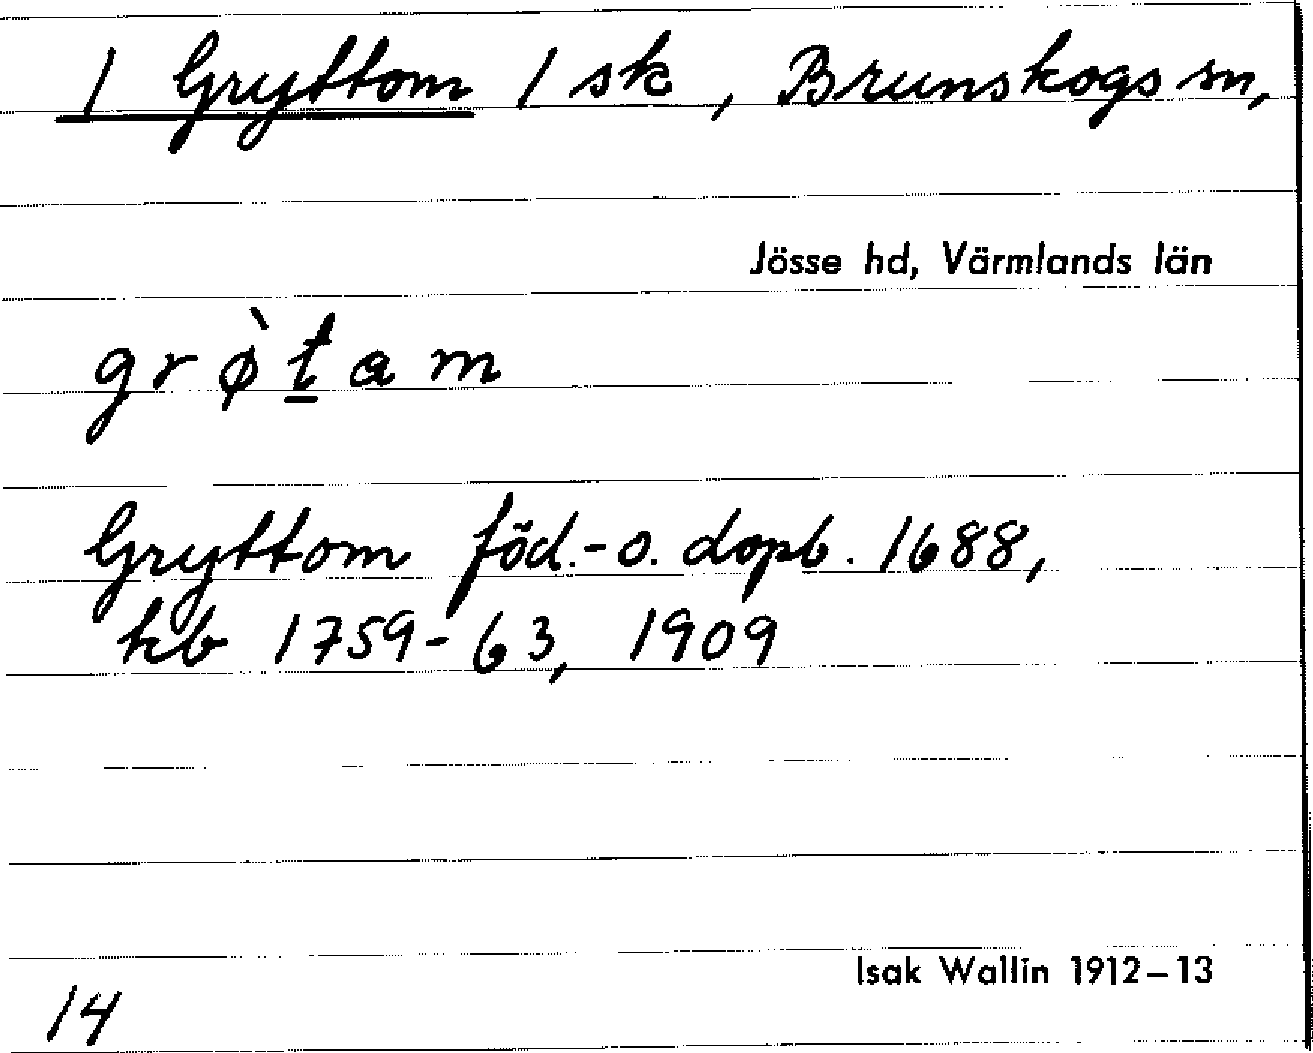 / Gryttom / sk, Brunskogs sn,
Jösse hd, Värmlands län
grø̀ṯam
Gryttom föd.-o. dopb. 1688,
kb 1759-63, 1909
Isak Wallin 1912–13
14